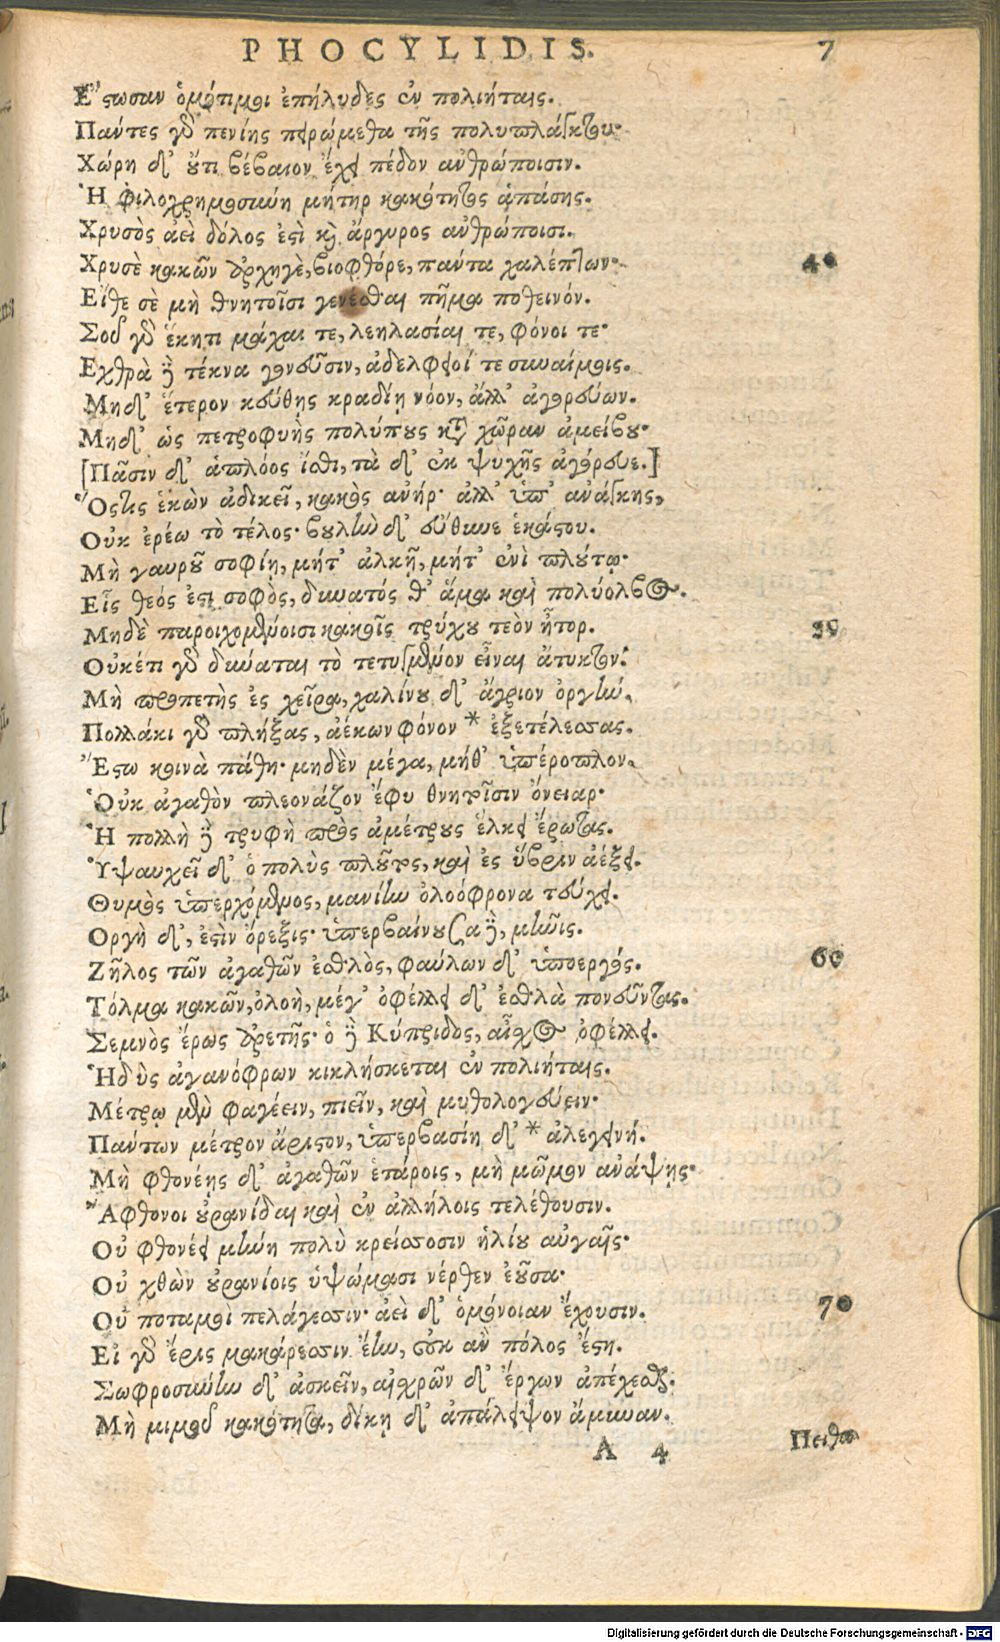 PHOCYLIDIS. 7
Ἔστωσαν ὁμότιμοι ἐπήλυδες ἐν πολιήταις.
Πάντες γὰρ πενίης πειρώμεθα τῆς πολυπλάγκτου·
Χώρη δ' οὔτι βέβαιον ἔχει πέδον ἀνθρώποισιν.
Ἡ φιλοχρημοσύνη μήτηρ κακότητος ἁπάσης.
Χρυσὸς ἀεὶ δόλος ἐστὶ καὶ ἄργυρος ἀνθρώποισι.
Χρυσὲ κακῶν ἀρχηγὲ, βιοφθόρε, πάντα χαλέπτων· 40
Εἴθε σὲ μὴ θνητοῖσι γενέσθαι πῆμα ποθεινόν.
Σοῦ γὰρ ἕκητι μάχαι τε, λεηλασίαι τε, φόνοι τε·
Εχθρὰ δὲ τέκνα γονεῦσιν, ἀδελφειοί τε συναίμοις.
Μηδ' ἕτερον κεύθης κραδίῃ νόον, ἄλλ' ἀγορεύων.
Μηδ' ὡς πετροφυὴς πολύπους κατὰ χῶραν ἀμείβου·
[Πᾶσιν δ' ἁπλόος ἴσθι, τὰ δ' ἐκ ψυχῆς ἀγόρευε.]
Ὅστις ἑκὼν ἀδικεῖ, κακὸς ἀνήρ· ἀλλ' ὑπ' ἀνάγκης,
Οὐκ ἐρέω τὸ τέλος· βουλὴν δ' εὔθυνε ἑκάστου.
Μὴ γαυροῦ σοφίῃ, μήτ' ἀλκῇ, μήτ' ἐνὶ πλούτῳ·
Εἷς θεός ἐστι σοφὸς, δυνατός θ' ἅμα καὶ πολύολβος.
Μηδὲ παροιχομένοισι κακοῖς τρύχου τεὸν ἦτορ. 50
Οὐκέτι γὰρ δύναται τὸ τετυγμένον εἶναι ἄτυκτον.
Μὴ προπετὴς ἐς χεῖρα, χαλίνου δ' ἄγριον ὀργήν.
Πολλάκι γὰρ πλήξας, ἀέκων φόνον * ἐξετέλεσας.
Ἔστω κοινὰ πάθη· μηδὲν μέγα, μήθ' ὑπέροπλον.
Οὐκ ἀγαθὸν πλεονάζον ἔφυ θνητοῖσιν ὄνειαρ·
Ἡ πολλὴ δὲ τρυφὴ πρὸς ἀμέτρους ἕλκει ἔρωτας.
Ὑψαυχεῖ δ' ὁ πολὺς πλοῦτος, καὶ ἐς ὕβριν ἀέξει.
Θυμὸς ὑπερχόμενος, μανίην ὀλοόφρονα τεύχει.
Οργὴ δ', ἐστὶν ὄρεξις· ὑπερβαίνουσα δὲ, μῆνις.
Ζῆλος τῶν ἀγαθῶν ἐσθλὸς, φαύλων δ' ὑποεργός. 60
Τόλμα κακῶν, ὀλοὴ, μέγ' ὀφέλλει δ' ἐσθλὰ πονεῦντας.
Σεμνὸς ἔρως ἀρετῆς· ὁ δὲ Κύπριδος, αἶσχος ὀφέλλει.
Ἡδὺς ἀγανόφρων κικλήσκεται ἐν πολιήταις.
Μέτρῳ μὲν φαγέειν, πιεῖν, καὶ μυθολογεύειν·
Πάντων μέτρον ἄριστον, ὑπερβασίη δ' * ἀλεγεινή.
Μὴ φθονέῃς δ' ἀγαθῶν ἑτάροις, μὴ μῶμον ἀνάψῃς·
Ἄφθονοι οὐρανίδαι καὶ ἐν ἀλλήλοις τελέθουσιν.
Οὐ φθονέει μήνη πολὺ κρείσσοσιν ἡλίου αὐγαῖς·
Οὐ χθὼν οὐρανίοις ὑψώμασι νέρθεν ἐοῦσα·
Οὐ ποταμοὶ πελάγεσσιν· ἀεὶ δ' ὁμόνοιαν ἔχουσιν. 70
Εἰ γὰρ ἔρις μακάρεσσιν ἔην, οὐκ ἂν πόλος ἔστη.
Σωφροσύνην δ' ἀσκεῖν, αἰσχρῶν δ' ἔργων ἀπέχεσθαι.
Μὴ μιμοῦ κακότητα, δίκῃ δ' ἀπάλειψον ἄμυναν.
A 4 Πειθὼ
Digitalisierung gefördert durch die Deutsche Forschungsgemeinschaft - DFG